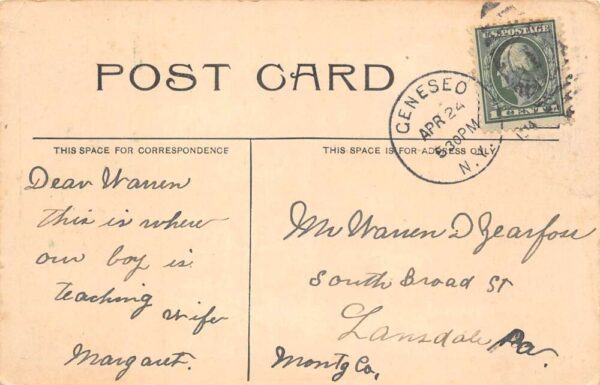 POST CARD
U.S. POSTAGE
1 CENT
GENESEO
APR 24
5:30PM
N.Y.
THIS SPACE FOR CORRESPONDENCE
THIS SPACE IS FOR ADDRESS ONLY
Dear Warren
this is where
our boy is
teaching
wife
Margaret.
Mr Warren D Zearfoss
South Broad St
Lansdale, Pa.
Montg Co,